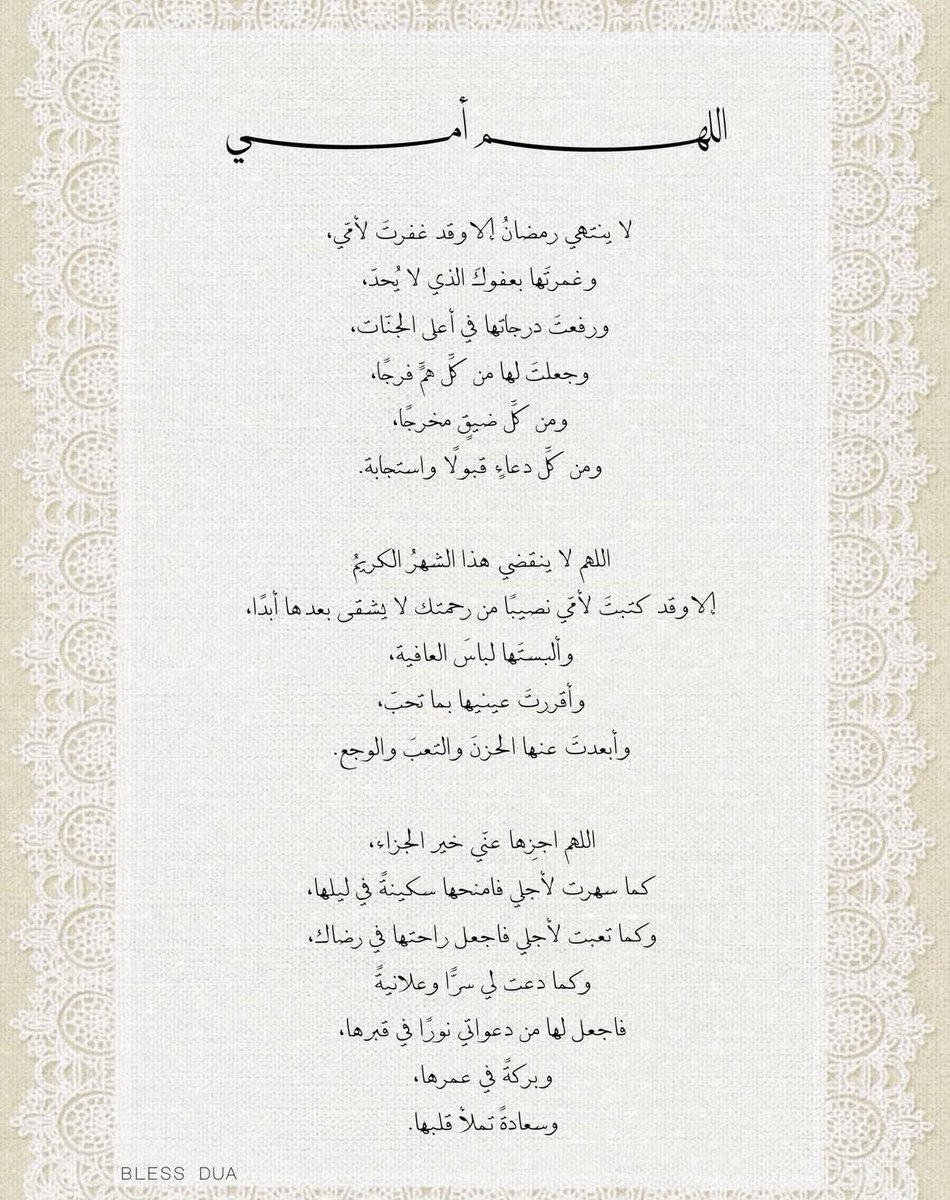 اللهم أمي
لا ينتهي رمضانُ إلا وقد غفرتَ لأمّي،
وغمرتَها بعفوكَ الذي لا يُحدّ،
ورفعتَ درجاتها في أعلى الجنّات،
وجعلتَ لها من كلِّ همٍّ فرجًا،
ومن كلِّ ضيقٍ مخرجًا،
ومن كلِّ دعاءٍ قبولًا واستجابة.
اللهم لا ينقضي هذا الشهرُ الكريمُ
إلا وقد كتبتَ لأمّي نصيبًا من رحمتك لا يشقى بعدها أبدًا،
وألبستَها لباسَ العافية،
وأقررتَ عينيها بما تحبّ،
وأبعدتَ عنها الحزنَ والتعبَ والوجع.
اللهم اجزِها عنّي خير الجزاء،
كما سهرت لأجلي فامنحها سكينةً في ليلها،
وكما تعبت لأجلي فاجعل راحتها في رضاك،
وكما دعت لي سرًّا وعلانيةً
فاجعل لها من دعواتي نورًا في قبرها،
وبركةً في عمرها،
وسعادةً تملأ قلبها.
BLESS DUA